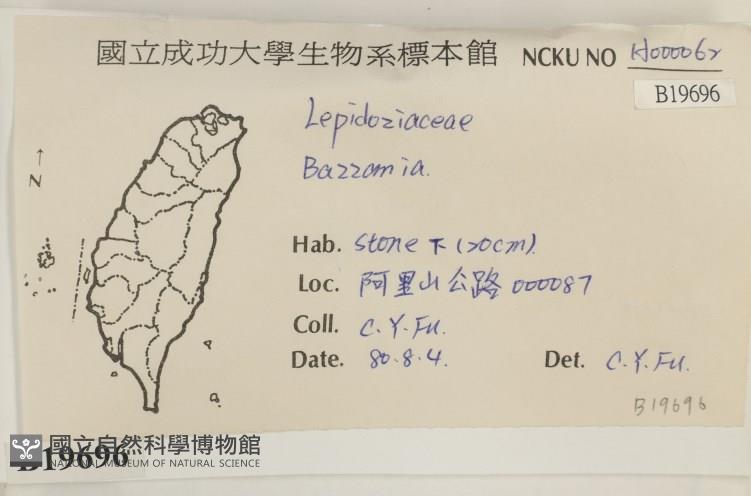 國立成功大學生物系標本館 NCKU NO H000062
B19696
Lepidoziaceae
Bazzania.
N
Hab. Stone下(20cm).
Loc. 阿里山公路 000087
Coll. C.Y.Fu.
Date. 80.8.4. Det. C.Y.Fu.
B19696
國立自然科學博物館
NATIONAL MUSEUM OF NATURAL SCIENCE
B19696